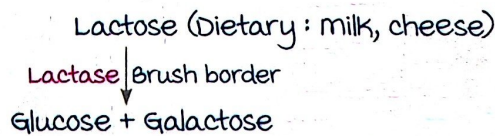 Lactose (Dietary : milk, cheese)
Lactase Brush border
Glucose + Galactose